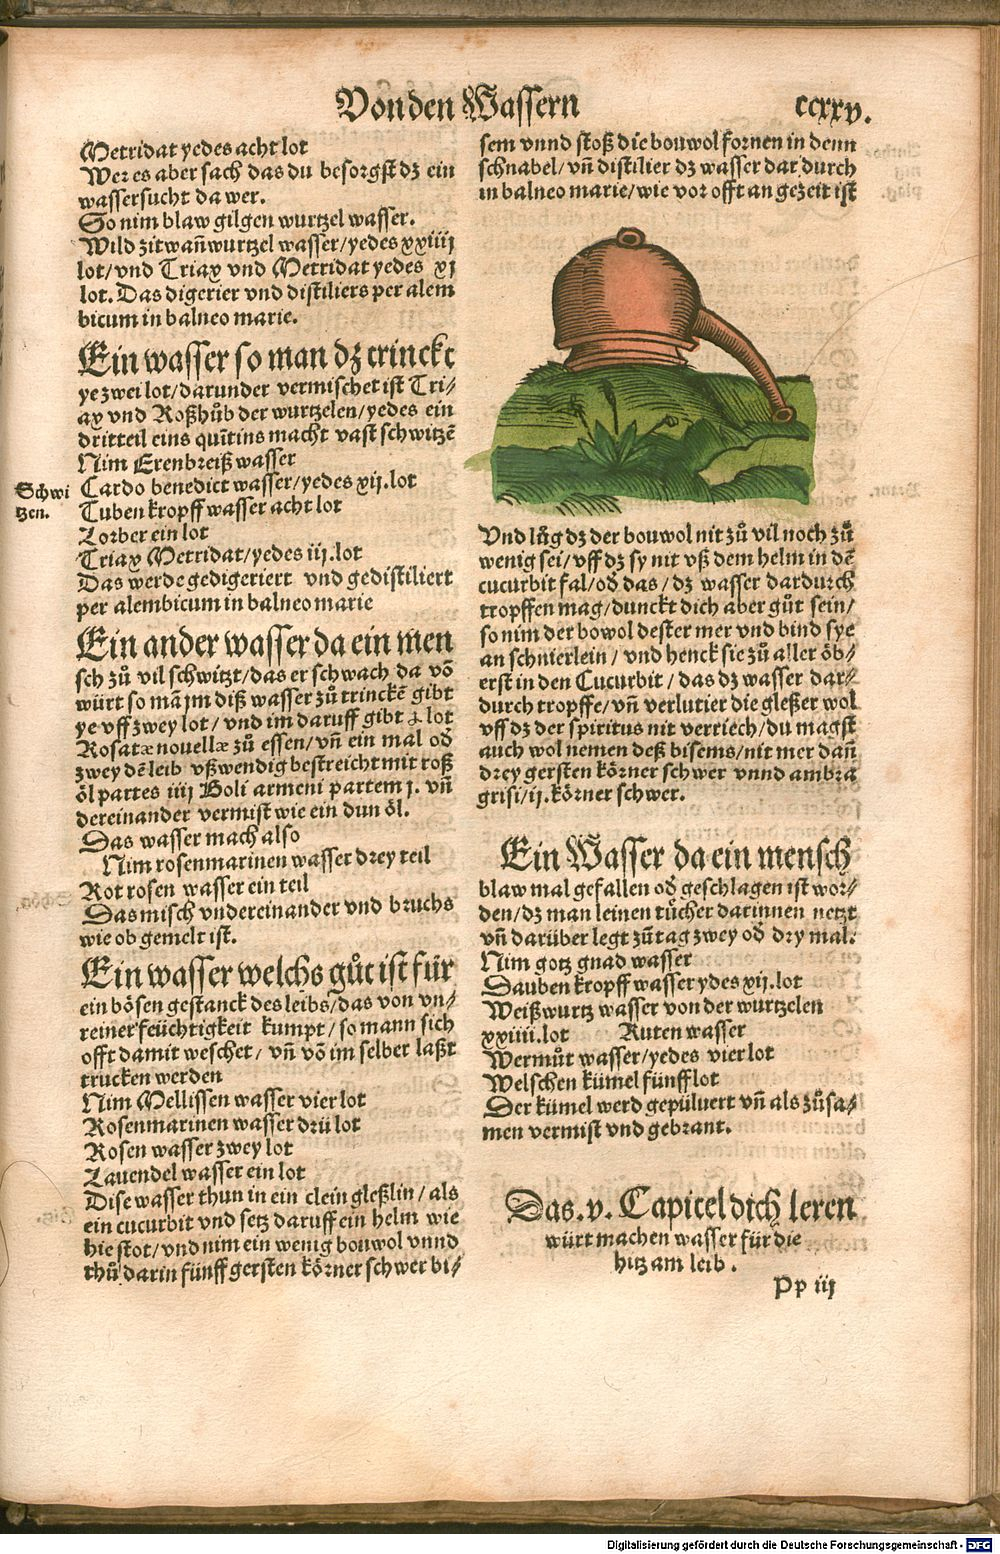 Von den Wassern
ccxxv.
Metridat yedes acht lot
Wer es aber sach das du besorgst dz ein
wassersucht da wer.
So nim blaw gilgen wurtzel wasser.
Wild zitwañwurtzel wasser/yedes xxiiij
lot/vnd Triax vnd Metridat yedes xj
lot. Das digerier vnd distiliers per alem
bicum in balneo marie.
Ein wasser so man dz trinckt
ye zwei lot/darunder vermischet ist Tri⸗/
ax vnd Roßhůb der wurtzelen/yedes ein
dritteil eins quītins macht vast schwitzē
Nim Erenbreiß wasser
Schwi
tzen.
Cardo benedict wasser/yedes xij.lot
Tuben kropff wasser acht lot
Lorber ein lot
Triax Metridat/yedes iij.lot
Das werde gedigeriert vnd gedistiliert
per alembicum in balneo marie
Ein ander wasser da ein men
sch zů vil schwitzt/das er schwach da vō
würt so mā jm diß wasser zů trinckē gibt
ye vff zwey lot/vnd im daruff gibt lot
Rosatæ nouellæ zů essen/vñ ein mal oď
zwey dē leib vßwendig bestreicht mit roß
öl partes iiij Boli armeni partem j. vñ
dereinander vermist wie ein dun öl.
Das wasser mach also
Nim rosenmarinen wasser drey teil
Rot rosen wasser ein teil
Das misch vndereinander vnd bruchs
wie ob gemelt ist.
Ein wasser welchs gůt ist für
ein bösen gestanck des leibs/das von vn⸗/
reiner feüchtigkeit kumpt/so mann sich
offt damit weschet/vñ vō im selber laßt
trucken werden
Nim Mellissen wasser vier lot
Rosenmarinen wasser drü lot
Rosen wasser zwey lot
Lauendel wasser ein lot
Dise wasser thun in ein clein gleßlin/als
ein cucurbit vnd setz daruff ein helm wie
hie stot/vnd nim ein wenig bouwol vnnd
thů darin fünff gersten körner schwer bi⸗/
sem vnnd stoß die bouwol fornen in denn
schnabel/vñ distilier dz wasser dar durch
in balneo marie/wie vor offt an gezeit ist
Vnd lůg dz der bouwol nit zů vil noch zů
wenig sei/vff dz sy nit vß dem helm in dē
cucurbit fal/oď das/dz wasser dardurch
tropffen mag/dunckt dich aber gůt sein/
so nim der bowol dester mer vnd bind sye
an schnierlein/vnd henck sie zů aller öb⸗/
erst in den Cucurbit/das dz wasser dar⸗/
durch tropffe/vñ verlutier die gleßer wol
vff dz der spiritus nit verriech/du magst
auch wol nemen deß bisems/nit mer dañ
drey gersten körner schwer vnnd ambra
grisi/ij.körner schwer.
Ein Wasser da ein mensch
blaw mal gefallen oď geschlagen ist wor⸗/
den/dz man leinen tücher darinnen netzt
vñ darüber legt zūtag zwey oď dry mal.
Nim gotz gnad wasser
Dauben kropff wasser ydes xij.lot
Weißwurtz wasser von der wurtzelen
xxiiii.lot Ruten wasser
Wermůt wasser/yedes vier lot
Welschen kümel fünff lot
Der kümel werd gepüluert vñ als zůsa⸗/
men vermist vnd gebrant.
Das.v.Capitel dich leren
würt machen wasser für die
hitz am leib.
Pp iij
Digitalisierung gefördert durch die Deutsche Forschungsgemeinschaft - DFG